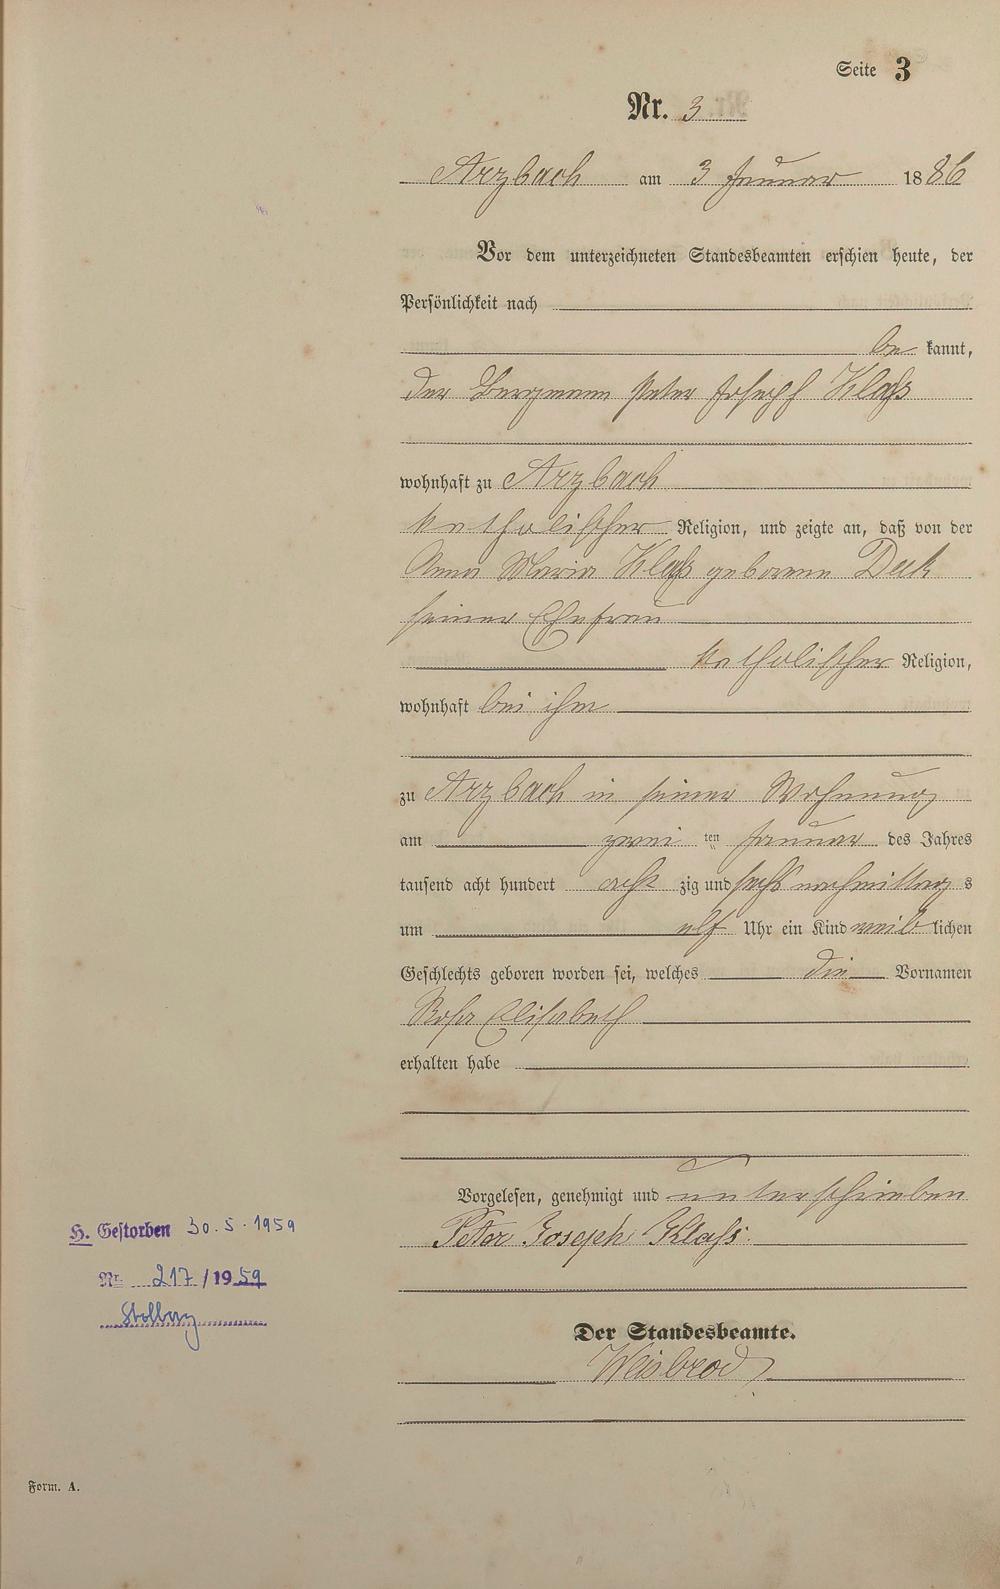 Seite 3
Nr. 3
Arzbach am 3 Januar 1886
Vor dem unterzeichneten Standesbeamten erschien heute, der
Persönlichkeit nach
be kannt,
der Bergmann Peter Joseph Klaß
wohnhaft zu Arzbach
katholischer Religion, und zeigte an, daß von der
Anna Maria Klaß geborene Deck
seiner Ehefrau
katholischer Religion,
wohnhaft bei ihm
zu Arzbach in seiner Wohnung
am zwei ten Januar des Jahres
tausend acht hundert acht zig und sechs nachmittag s
um elf Uhr ein Kind weib lichen
Geschlechts geboren worden sei, welches die Vornamen
Rosa Elisabeth
erhalten habe
Vorgelesen, genehmigt und unterschrieben
Peter Joseph Klaß.
H. Gestorben 30.5.1959
Nr. 217/1959
Stolberg
Der Standesbeamte.
Weisbrod
Form. A.